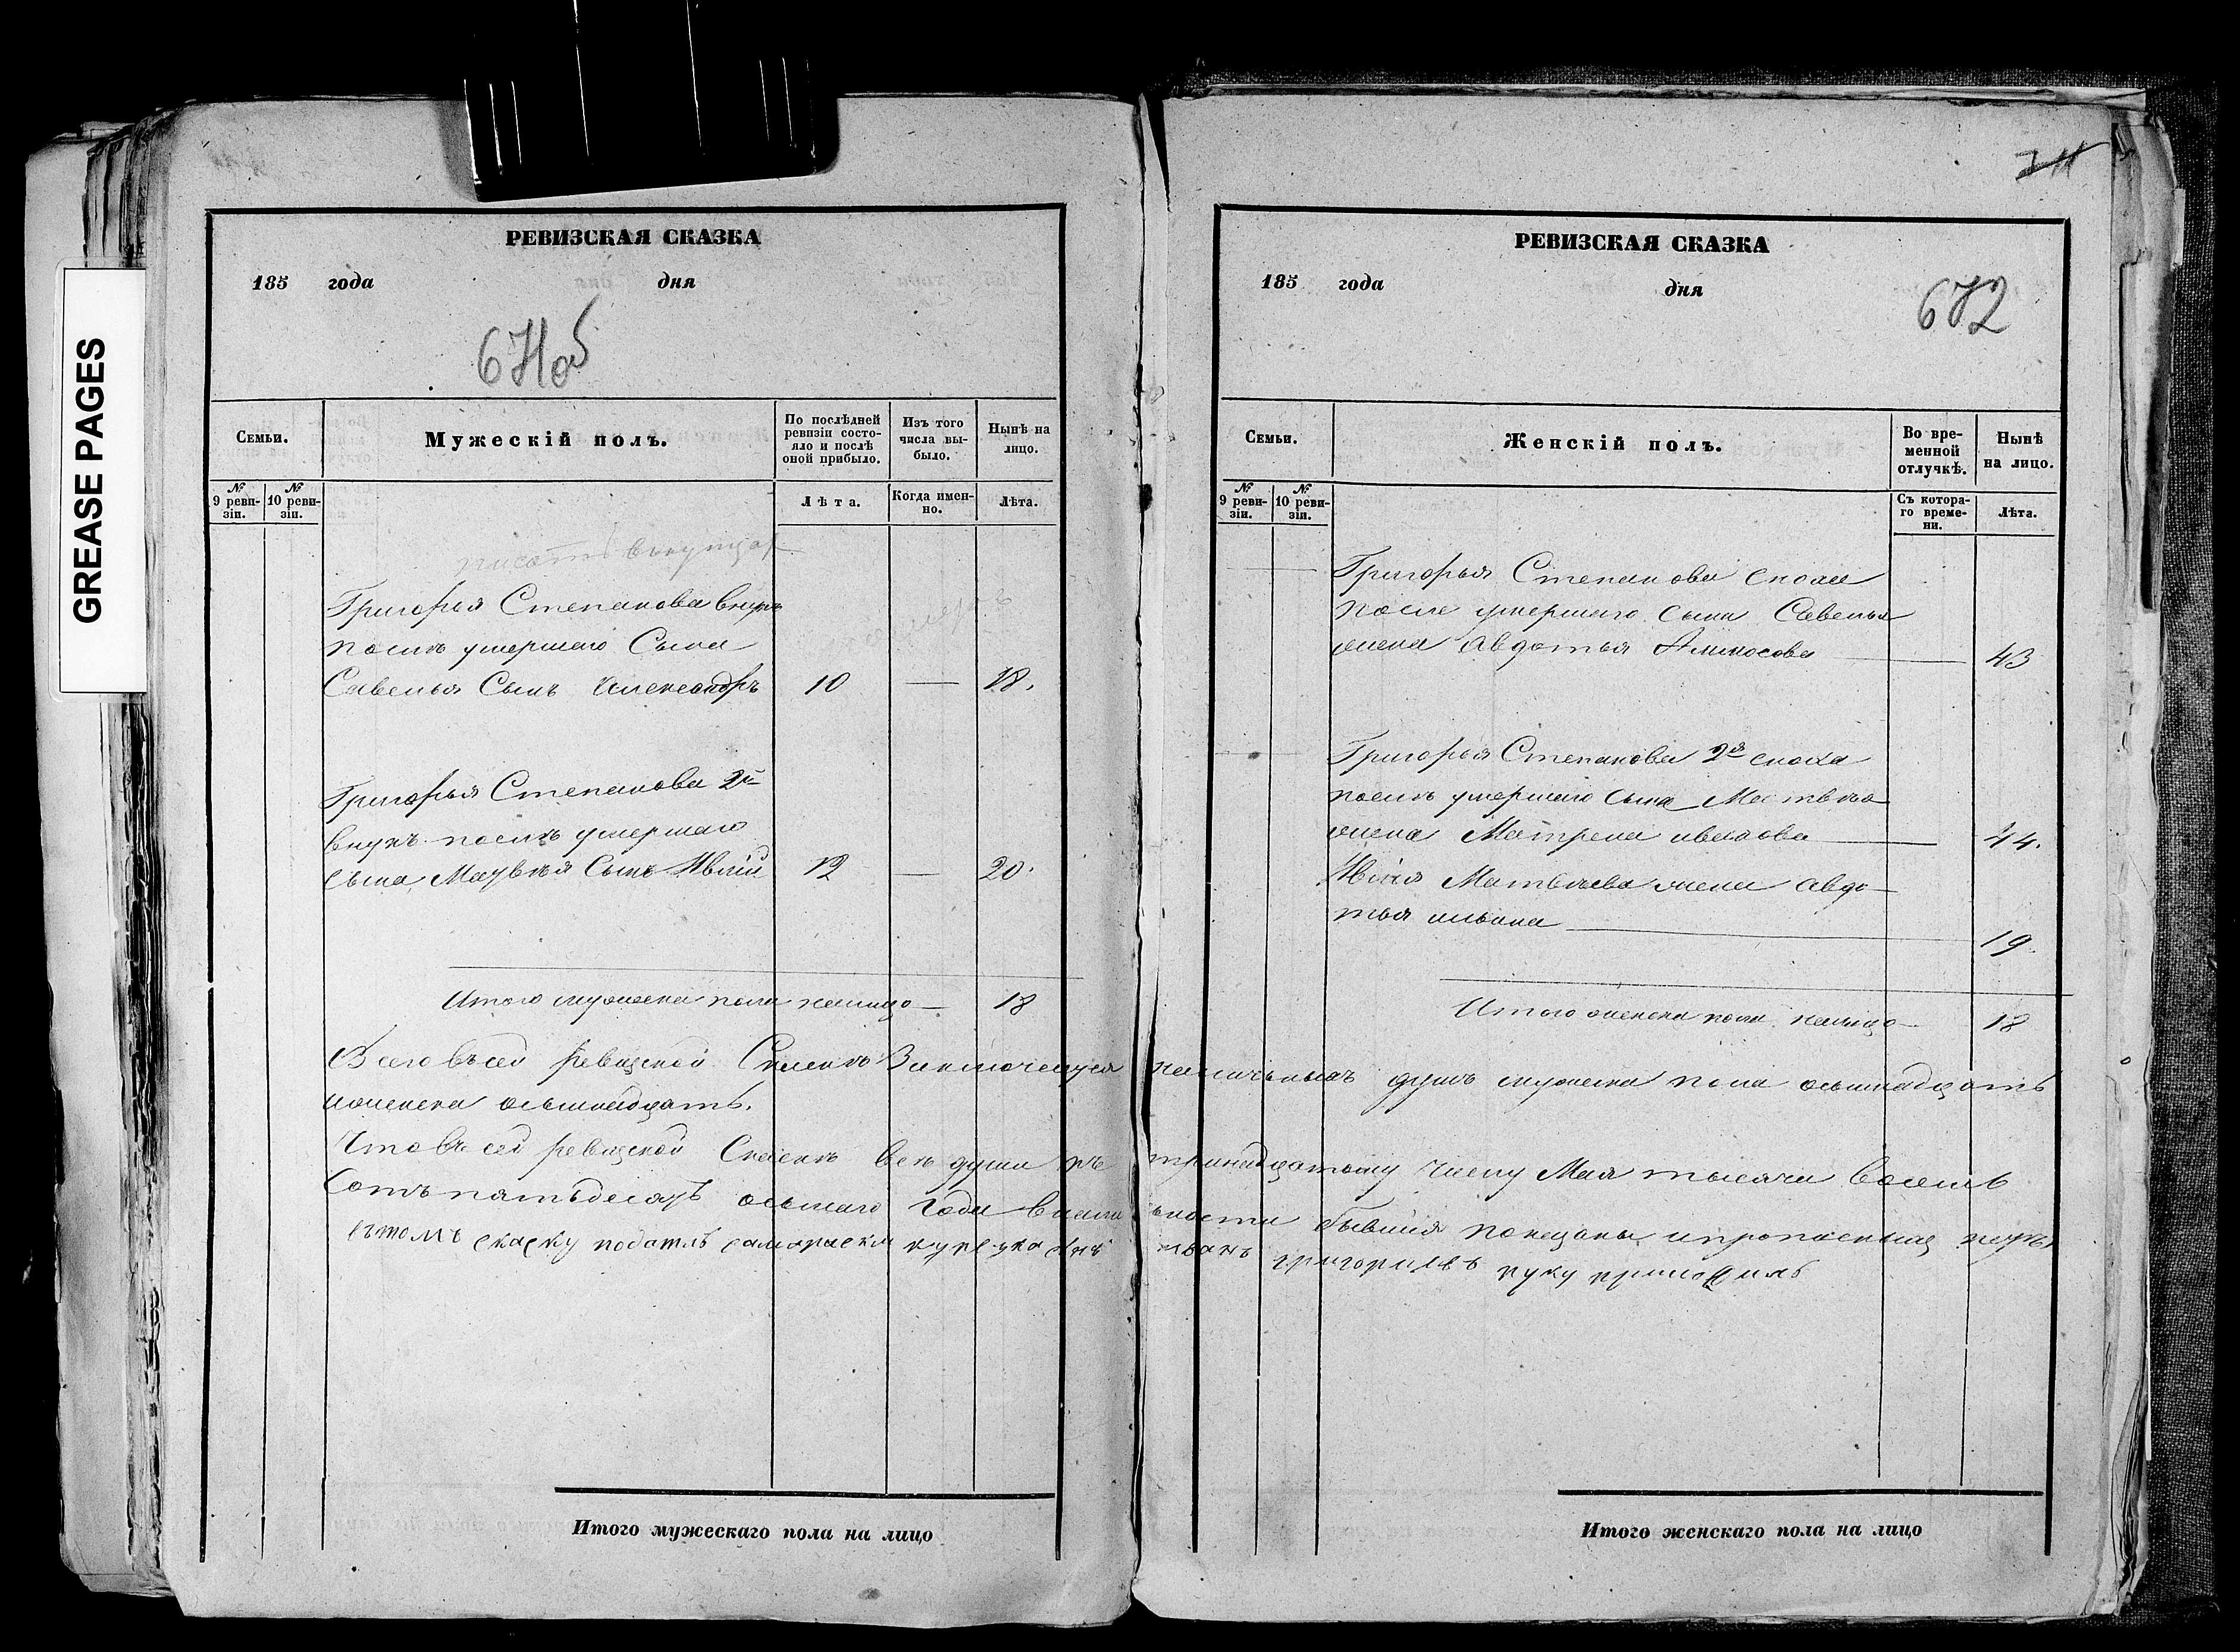 GREASE PAGES
РЕВИЗСКАЯ СКАЗКА
185 года дня
671об
Семьи.
Мужескій полъ.
По послѣдней ревизіи состо-
яло и послѣ
оной прибыло.
Изъ того
числа вы-
было.
Нынѣ на
лицо.
№ 9 реви-
зіи.
№ 10 реви-
зіи.
Лѣта.
Когда имен-
но.
Лѣта.
писать
Григорья Степанова внукъ
послѣ умершаго Сына
Савелья Сынъ Александръ 10 — 18.
Григорья Степанова 2й
внукъ послѣ умершаго
сына Матвѣя Сынъ 12 — 20.
Итого мужеска пола налицо — 18
Всего въ сей ревизской Сказкѣ Заключается
иженска осьмнадцать.
Что въ сей ревизской Сказкѣ всѣ души къ
Сотъ пятьдесятъ осьмаго года
вътомъ скаску подалъ
Итого мужескаго пола на лицо
711
РЕВИЗСКАЯ СКАЗКА
185 года дня
672
Семьи.
Женскій полъ.
Во вре-
менной
отлучкѣ.
Нынѣ
на лицо.
№ 9 реви-
зіи.
№ 10 реви-
зіи.
Съ котора-
го време-
ни.
Лѣта.
Григорья Степанова сноха
после умершаго сына Савелья
жена Авдотья — 43
Григорья Степанова 2я сноха
послѣ умершаго сына Матвѣя
жена Матрена иванова — 44.
Матвѣева жена Авдо-
тья — 19.
Итого женска пола налицо — 18
наличныхъ душъ мужеска пола осьмнадцать
тринадцатому числу Мая тысяча восемь
бывшія показаны
иванъ григорьевъ руку приложилъ
Итого женскаго пола на лицо